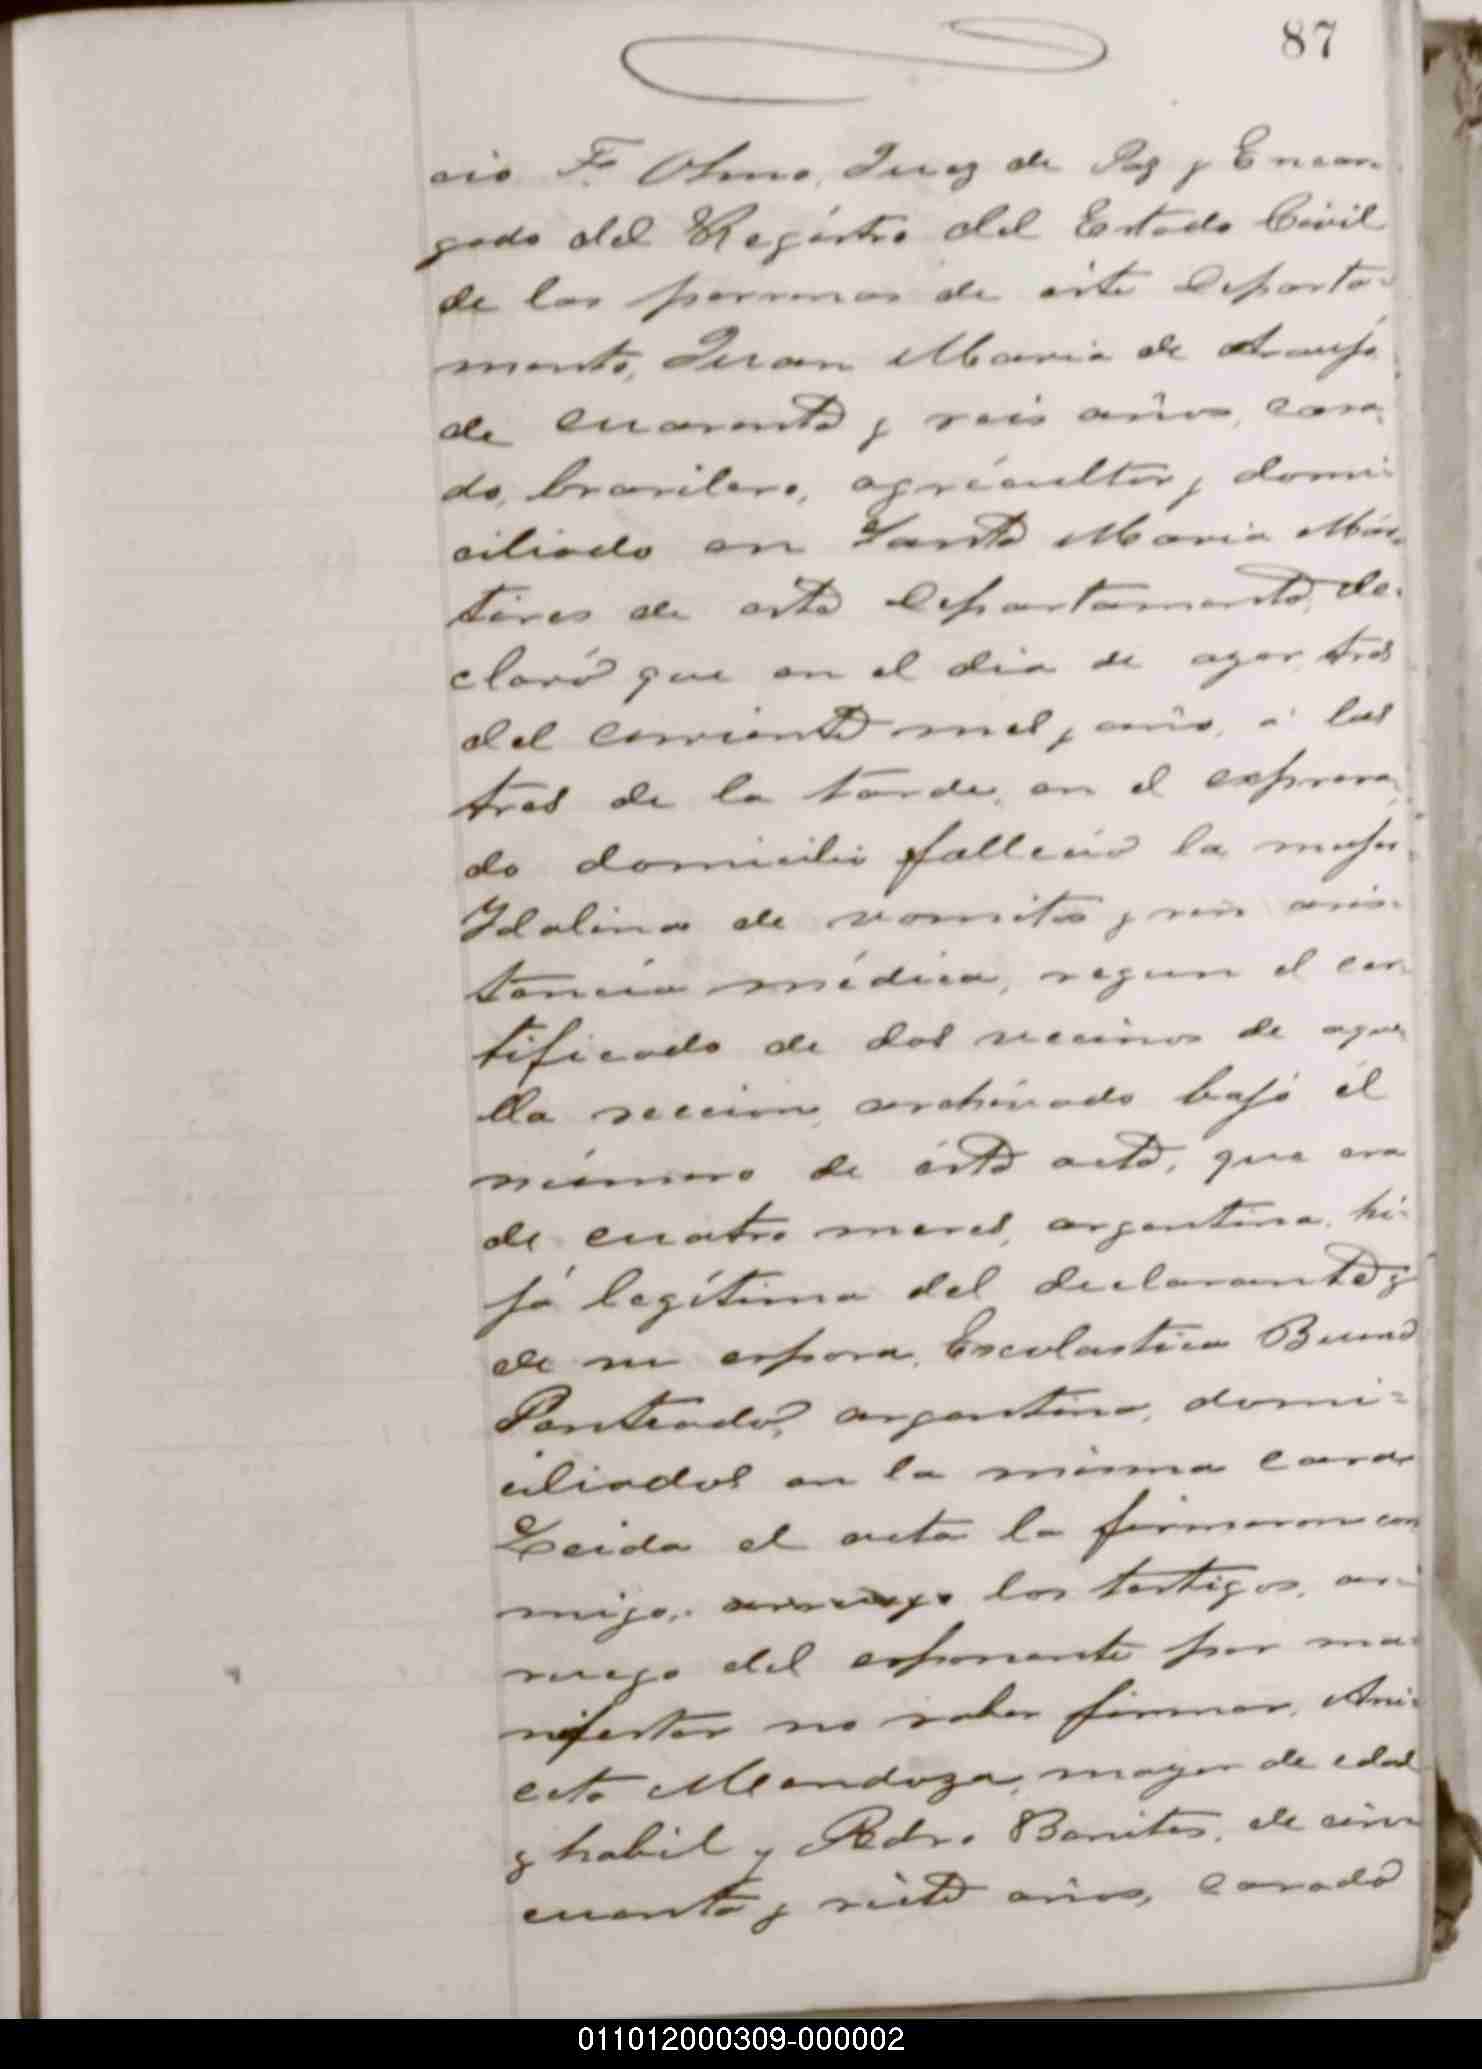 87
cio F. Olmo, Juez de Paz y Encar-
gado del Registro del Estado Civil
de las personas de este Departa-
mento, Juan Maria de Araujo
de cuarenta y seis años, casa-
do, brasilero, agricultor y domi-
ciliado en Santa Maria Már-
tires de este Departamento, de-
claró que en el dia de ayer tres
del corriente mes y año, á las
tres de la tarde, en el expresa-
do domicilio falleció la mujer
Idalina de vomitos y sin asis-
tencia médica, segun el cer-
tificado de dos vecinos de aque-
lla seccion, archivado bajo el
número de ésta acta, que era
de cuatro meses, argentina, hi-
ja legítima del declarante y
de su esposa, Escolastica Bueno
Penteado, argentina, domi-
ciliados en la misma casa
Leida el acta la firmaron con
migo, los testigos, a
ruego del esponente por ma-
nifestar no saber firmar, Ani-
ceto Mendoza, mayor de edad
y habil y Pedro Benites, de cin-
cuenta y siete años, casado
011012000309-000002